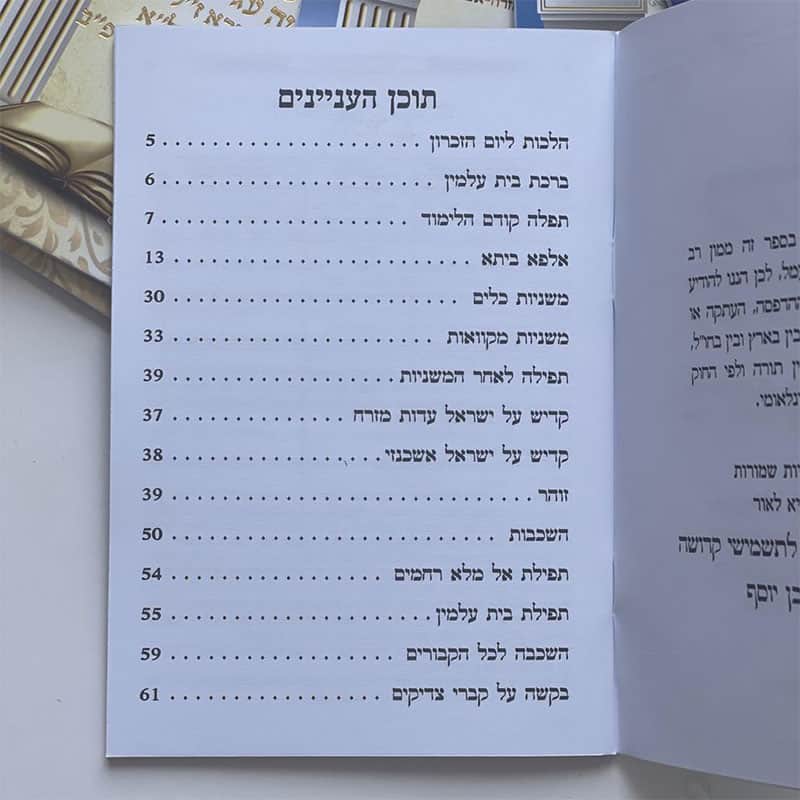 תוכן העניינים
הלכות ליום הזכרון . . . . . . . . . . . . . . . . . . . . . 5
ברכת בית עלמין . . . . . . . . . . . . . . . . . . . . . . 6
תפלה קודם הלימוד . . . . . . . . . . . . . . . . . . . . 7
אלפא ביתא . . . . . . . . . . . . . . . . . . . . . . . . 13
משניות כלים . . . . . . . . . . . . . . . . . . . . . . . 30
משניות מקוואות . . . . . . . . . . . . . . . . . . . . . 33
תפילה לאחר המשניות . . . . . . . . . . . . . . . . . . 39
קדיש על ישראל עדות מזרח . . . . . . . . . . . . . . . 37
קדיש על ישראל אשכנזי . . . . . . . . . . . . . . . . . 38
זוהר . . . . . . . . . . . . . . . . . . . . . . . . . . . . . 39
השכבות . . . . . . . . . . . . . . . . . . . . . . . . . . 50
תפילת אל מלא רחמים . . . . . . . . . . . . . . . . . 54
תפילת בית עלמין . . . . . . . . . . . . . . . . . . . . . 55
השכבה לכל הקבורים . . . . . . . . . . . . . . . . . . 59
בקשה על קברי צדיקים . . . . . . . . . . . . . . . . . 61
בספר זה ממון רב
לכן הננו להודיע
העתקה או
בין בארץ ובין בחו"ל,
תורה ולפי החוק
שמורות
לאור
לתשמישי קדושה
יוסף